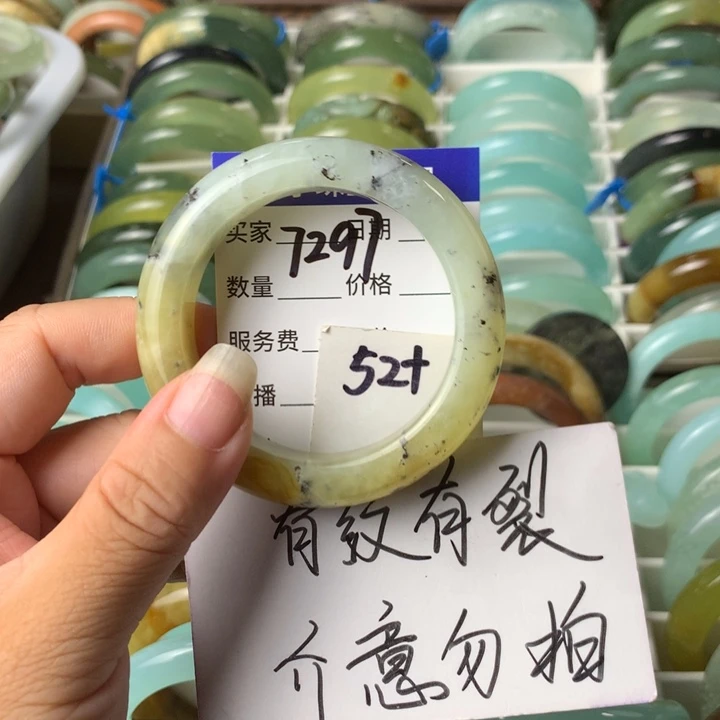 买家 7297 日期
数量 价格
服务费
播
52+
有纹有裂
介意勿拍